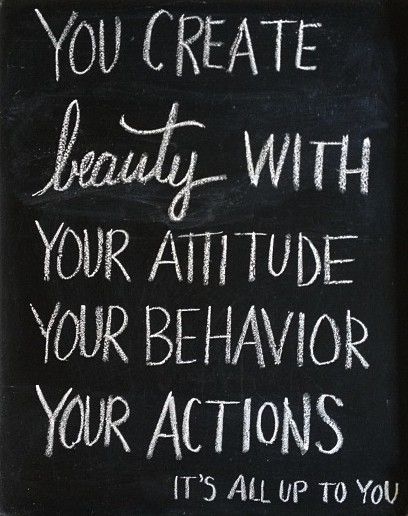 YOU CREATE
beauty WITH
YOUR ATTITUDE
YOUR BEHAVIOR
YOUR ACTIONS
IT'S ALL UP TO YOU